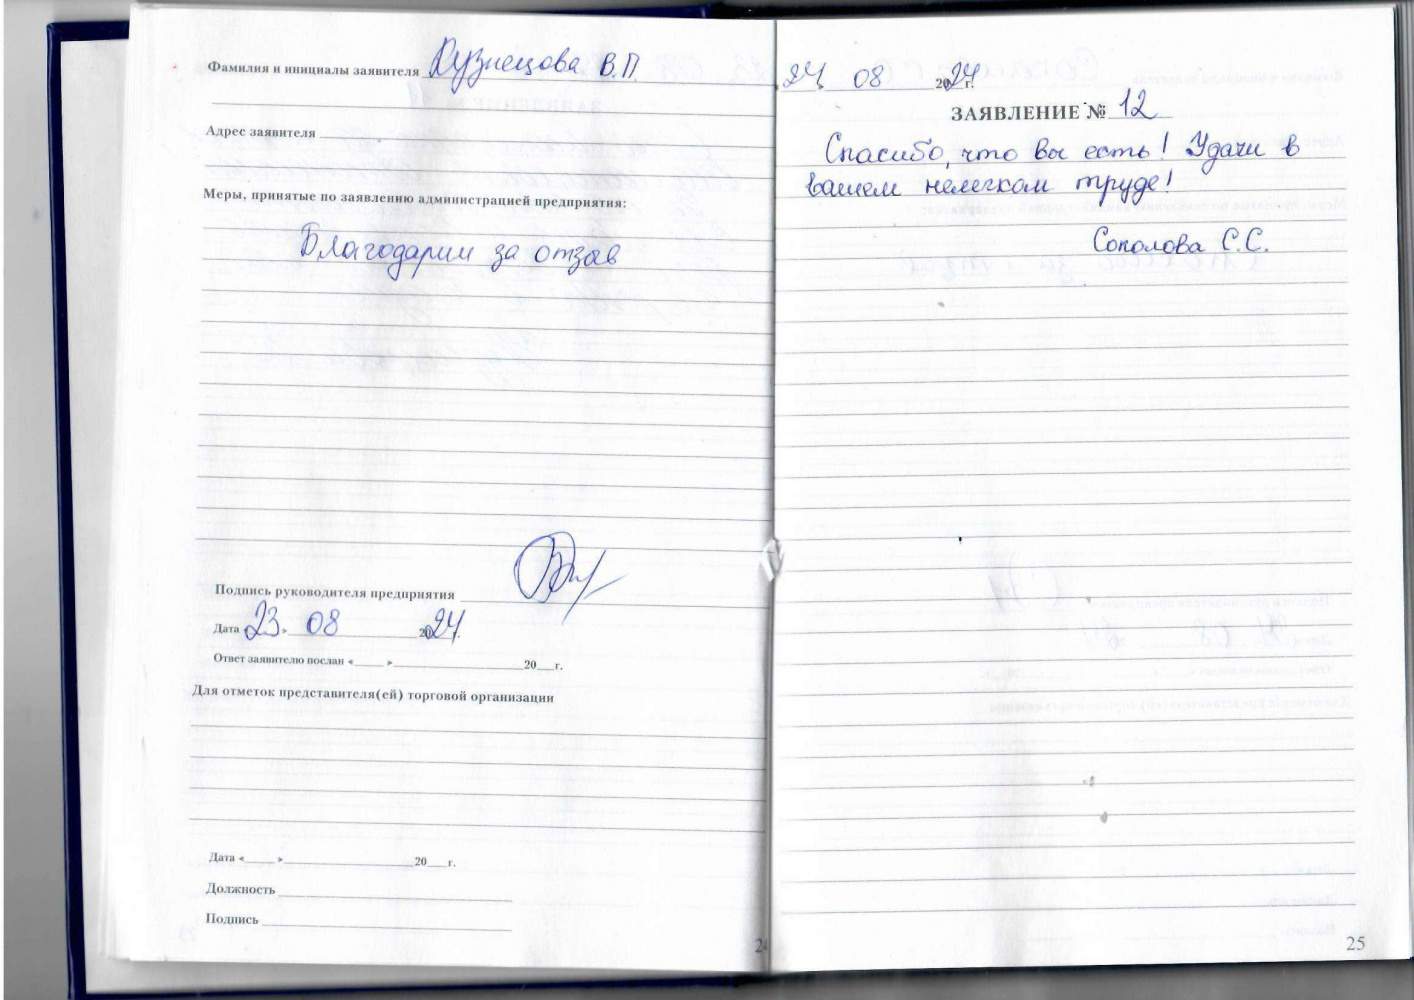 Фамилия и инициалы заявителя Кузнецова В.П
Адрес заявителя
Меры, принятые по заявлению администрацией предприятия:
Благодарим за отзыв
Подпись руководителя предприятия
Дата «23» 08 2024г.
Ответ заявителю послан «____» ____ 20__г.
Для отметок представителя(ей) торговой организации
Дата «____» ____ 20__г.
Должность
Подпись
24 08 2024г.
ЗАЯВЛЕНИЕ № 12
Спасибо, что вы есть! Удачи в
вашем нелегком труде!
Соколова С.С.
25